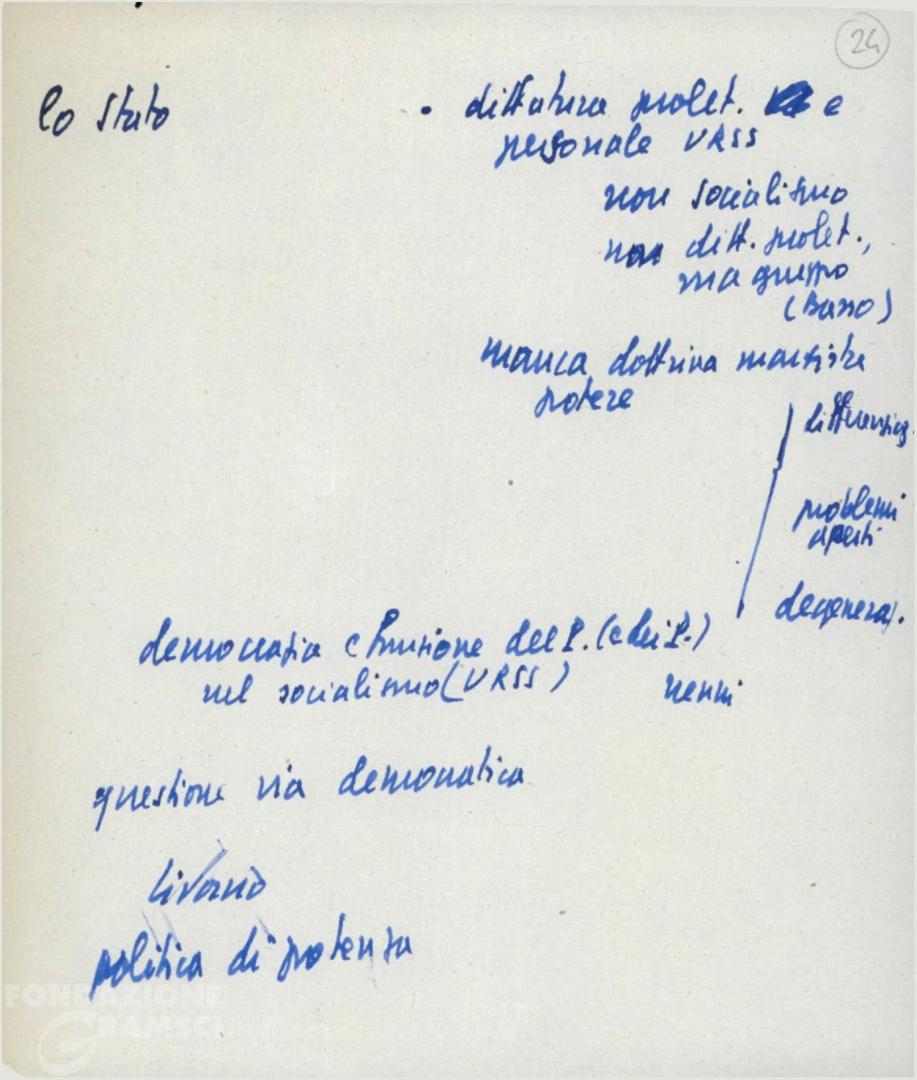 24
lo Stato
• dittatura prolet. e
personale URSS
non socialismo
non ditt. prolet.,
ma gruppo
(Basso)
manca dottrina marxista
potere
differenziaz.
problemi
aperti
degeneraz.
democrazia e funzione del P. (e dei P.)
nel socialismo (URSS)
nenni
questione via democratica
politica di potenza
FONDAZIONE
GRAMSCI